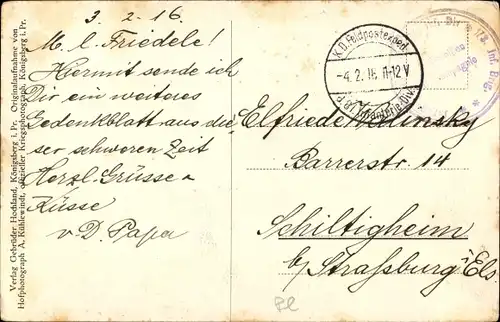 3. 2. 16
M. l. Friedele!
Hiermit sende ich
Dir ein weiteres
Gedenkblatt aus die
ser schweren Zeit
Herzl. Grüsse u
Küsse
v. D. Papa
Elfriede
Barrerstr. 14
Schiltigheim
b/ Straßburg i Els.
K.D. Feldpostexped.
-4.2.16. 11-12V
Inf. Brig.
Verlag Gebrüder Hochland, Königsberg i. Pr. Originalaufnahme von
Hofphotograph A. Kühlewindt, offizieller Kriegsphotograph, Königsberg i. Pr.